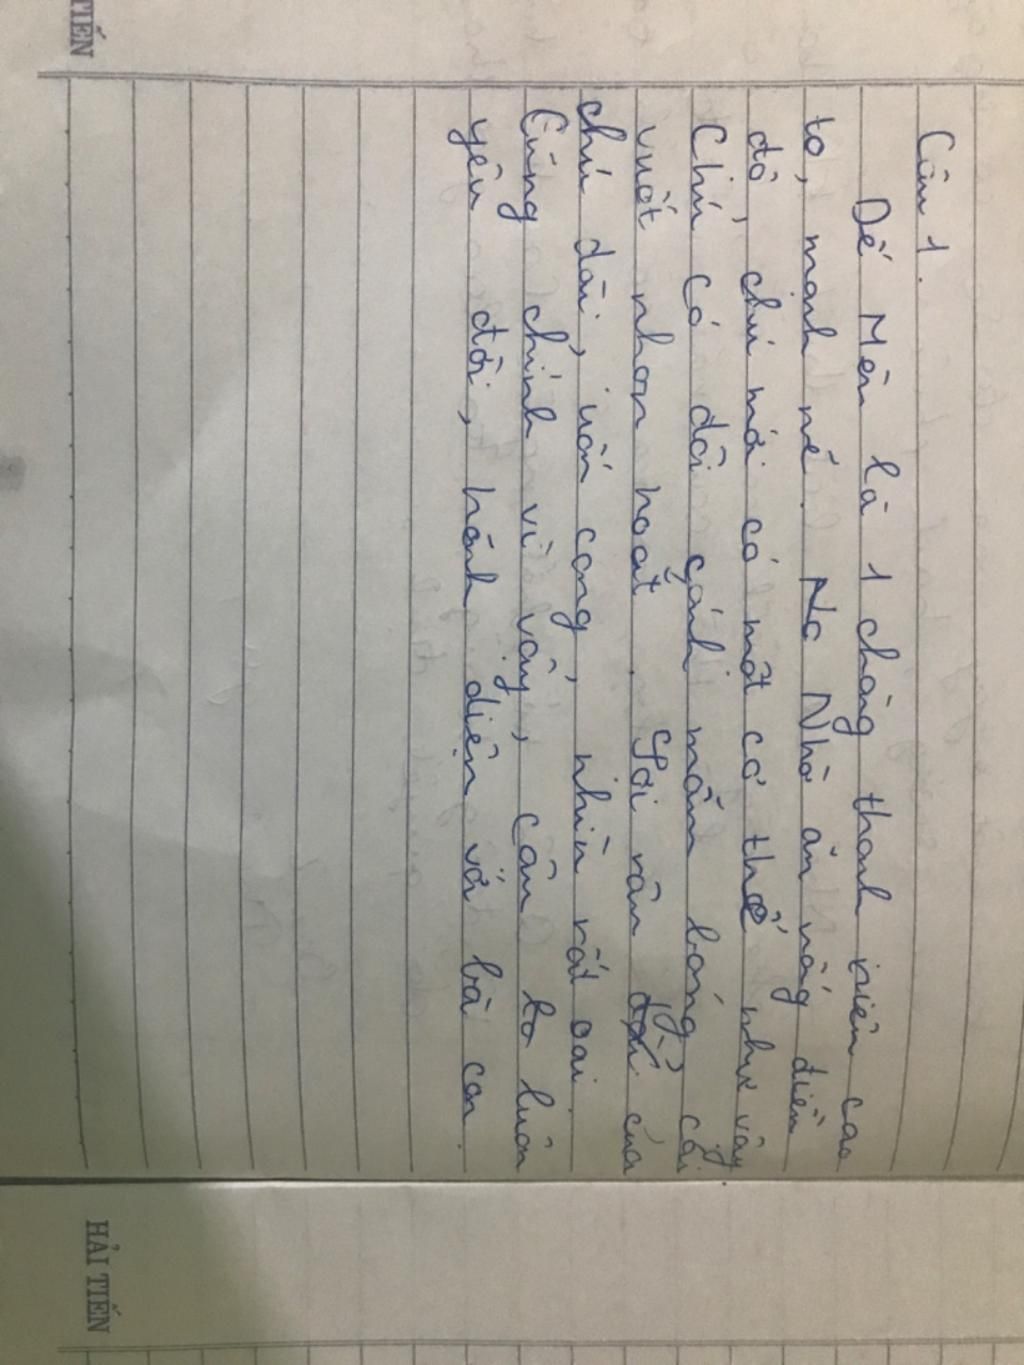 TIẾN
Câu 1.
Dế Mèn là 1 chàng thanh niên cao
to, mạnh mẽ. No Nhờ ăn năng điều
độ, chú mới có một cơ thể như vậy
Chú có đôi cánh mẫm bóng, cái
vuốt nhọn hoắt. Sợi râu của
chú dài, uốn cong, nhìn rất oai.
Cũng chính vì vậy, cậu ta luôn
yêu đời, hãnh diện với bà con.
HẢI TIẾN